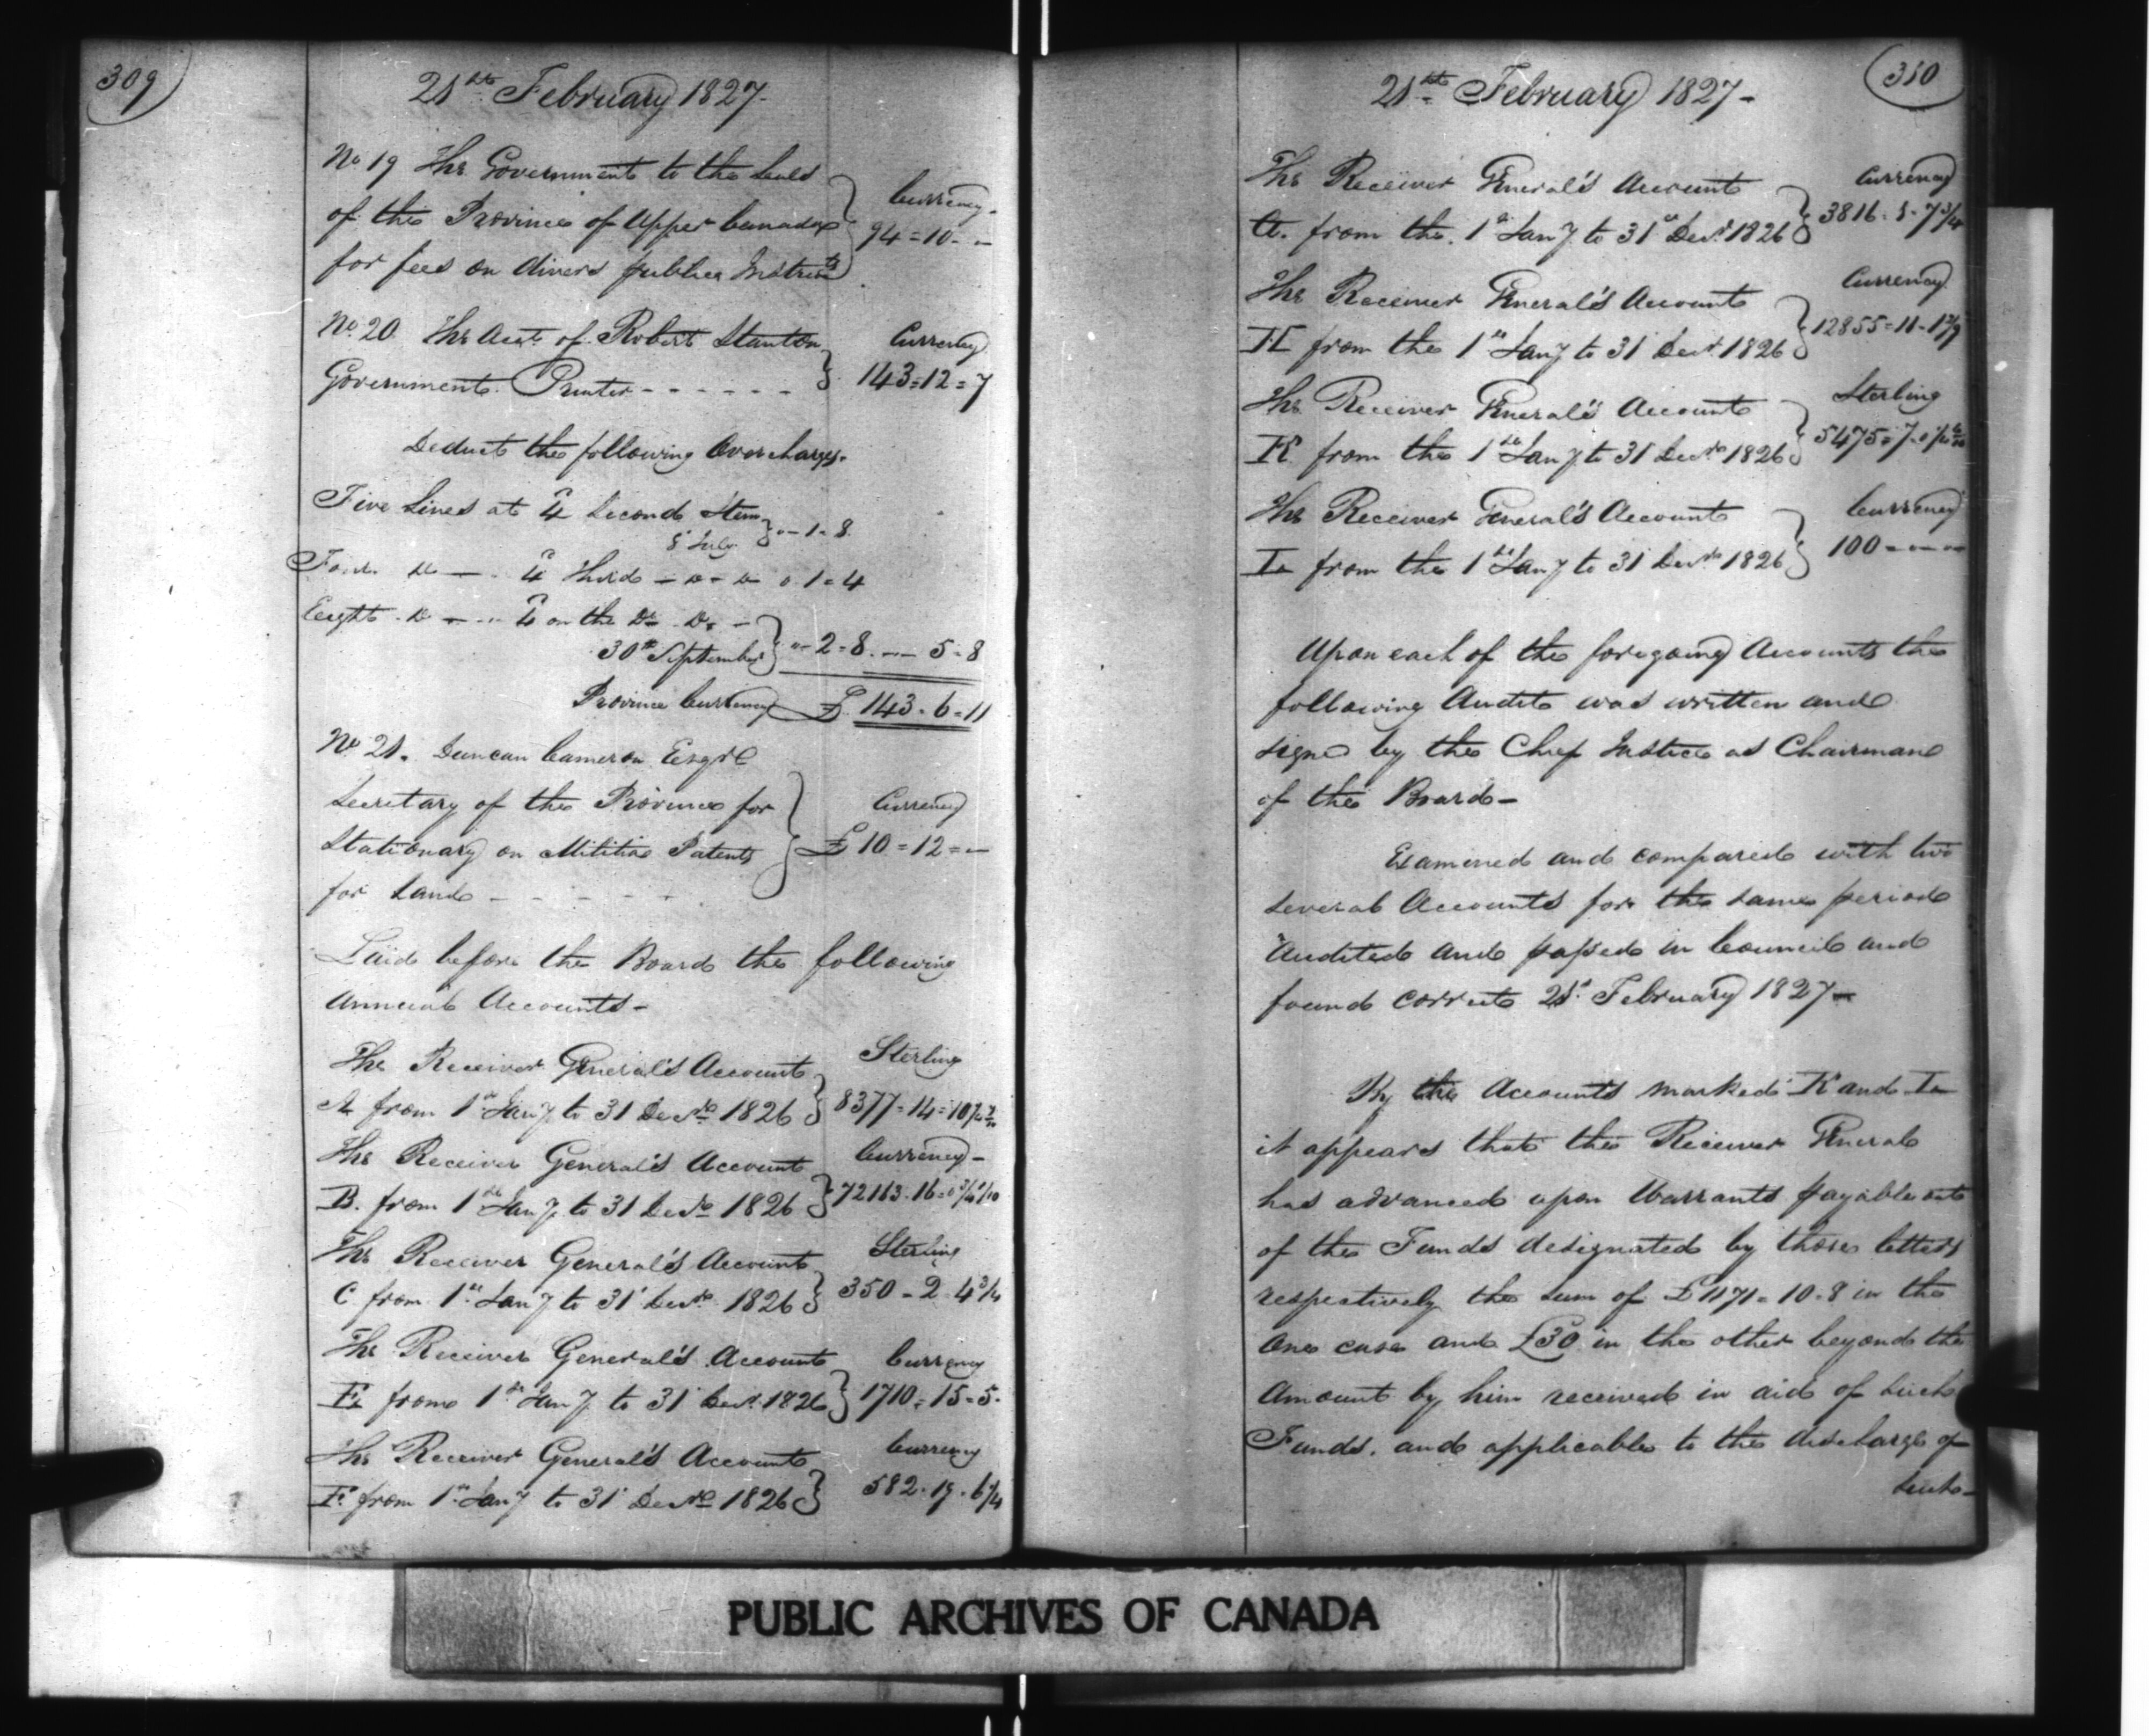 309
21st February 1827.
No 19 The Government to the Seals
of the Province of Upper Canada
for fees on divers publick Instruts
Currency
94=10- -
No 20 The Acct of Robert Stanton
Government Printer - - - - - -
Currency
143=12=7
Deduct the following Overcharges.
Five Lines at 4 Second Item
8 July
"-1-8
Four do - - 4 third - do - do 0 1=4
Eight do - - - 4 on the Do Do -
30th September
"-2=8. -- 5-8
Province Currency £ 143-6-11
No 21. Duncan Cameron Esqre
Secretary of the Province for
Stationary on Militia Patents
for Land - - - - -
Currency
£ 10=12=-
Laid before the Board the following
Annual Accounts-
The Receiver General's Account
A from 1st Jany to 31 Decr 1826
Sterling
8377=14=10
The Receiver General's Account
B. from 1st Jany to 31 Decr 1826
Currency-
72163-16=0
The Receiver General's Account
C from 1st Jany to 31 Decr 1826
Sterling
350-2-4 3/4
The Receiver General's Account
E from 1st Jany to 31 Decr 1826
Currency
1710=15=5.
The Receiver General's Account
F from 1st Jany to 31 Decr 1826
Currency
582-19-6
310
21st February 1827-
The Receiver General's Account
G. from the 1st Jany to 31st Decr 1826
Currency
3816-8-7 3/4
The Receiver General's Account
H from the 1st Jany to 31 Decr 1826
Currency
12855=11-1
The Receiver General's Account
K from the 1st Jany to 31 Decr 1826
Sterling
5475=7-0
The Receiver General's Account
L from the 1st Jany to 31 Decr 1826
Currency
100- - -
Upon each of the foregoing Accounts the
following Audit was written and
signd by the Chief Justice as Chairman
of the Board-
Examined and compared with two
several Accounts for the same period
Audited and passed in Council and
found correct 21st February 1827-
By the Accounts marked K and L
it appears that the Receiver General
has advanced upon Warrants payable out
of the Funds designated by those letters
respectively the sum of £1171-10-8 in the
one case and £30 in the other beyond the
Amount by him received in aid of such
Funds. and applicable to the discharge of
such-
PUBLIC ARCHIVES OF CANADA